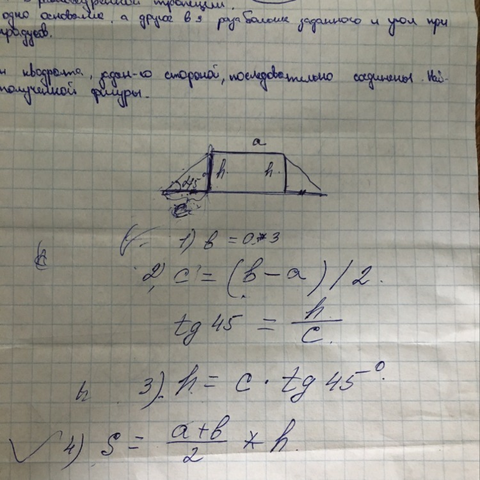 равнобедренной трапеции.
одно основание, а другое в 3 раза больше заданного и угол при
градусов.
квадрата, задан-ко стороной, последовательно соединены. Най-
полученной фигуры.
a
h h
45
1) b = a*3
2) c = (b-a)/2.
tg 45 = h/c.
h 3) h = c · tg 45°
4) S = (a+b)/2 * h.